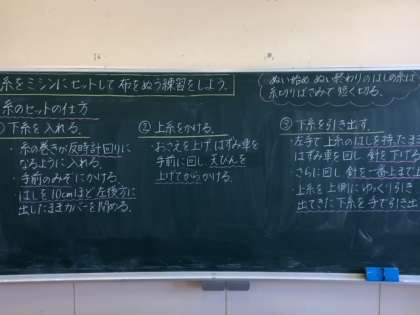 糸をミシンにセットして布をぬう練習をしよう。
ぬい始め ぬい終わりのはしの糸は
糸切りばさみで短く切る。
糸のセットの仕方
① 下糸を入れる。
・糸の巻きが反時計回りに
なるように入れる。
・手前のみぞにかける。
・はしを10cmほど左後方に
出したままカバーを閉める。
② 上糸をかける。
・おさえを上げ、はずみ車を
手前に回し、天びんを
上げてからかける。
③ 下糸を引き出す。
・左手で上糸のはしを持ったまま
はずみ車を回し、針を下げる
・さらに回し、針を一番上まで上
・上糸を上側にゆっくり引き
出てきた下糸を手で引き出